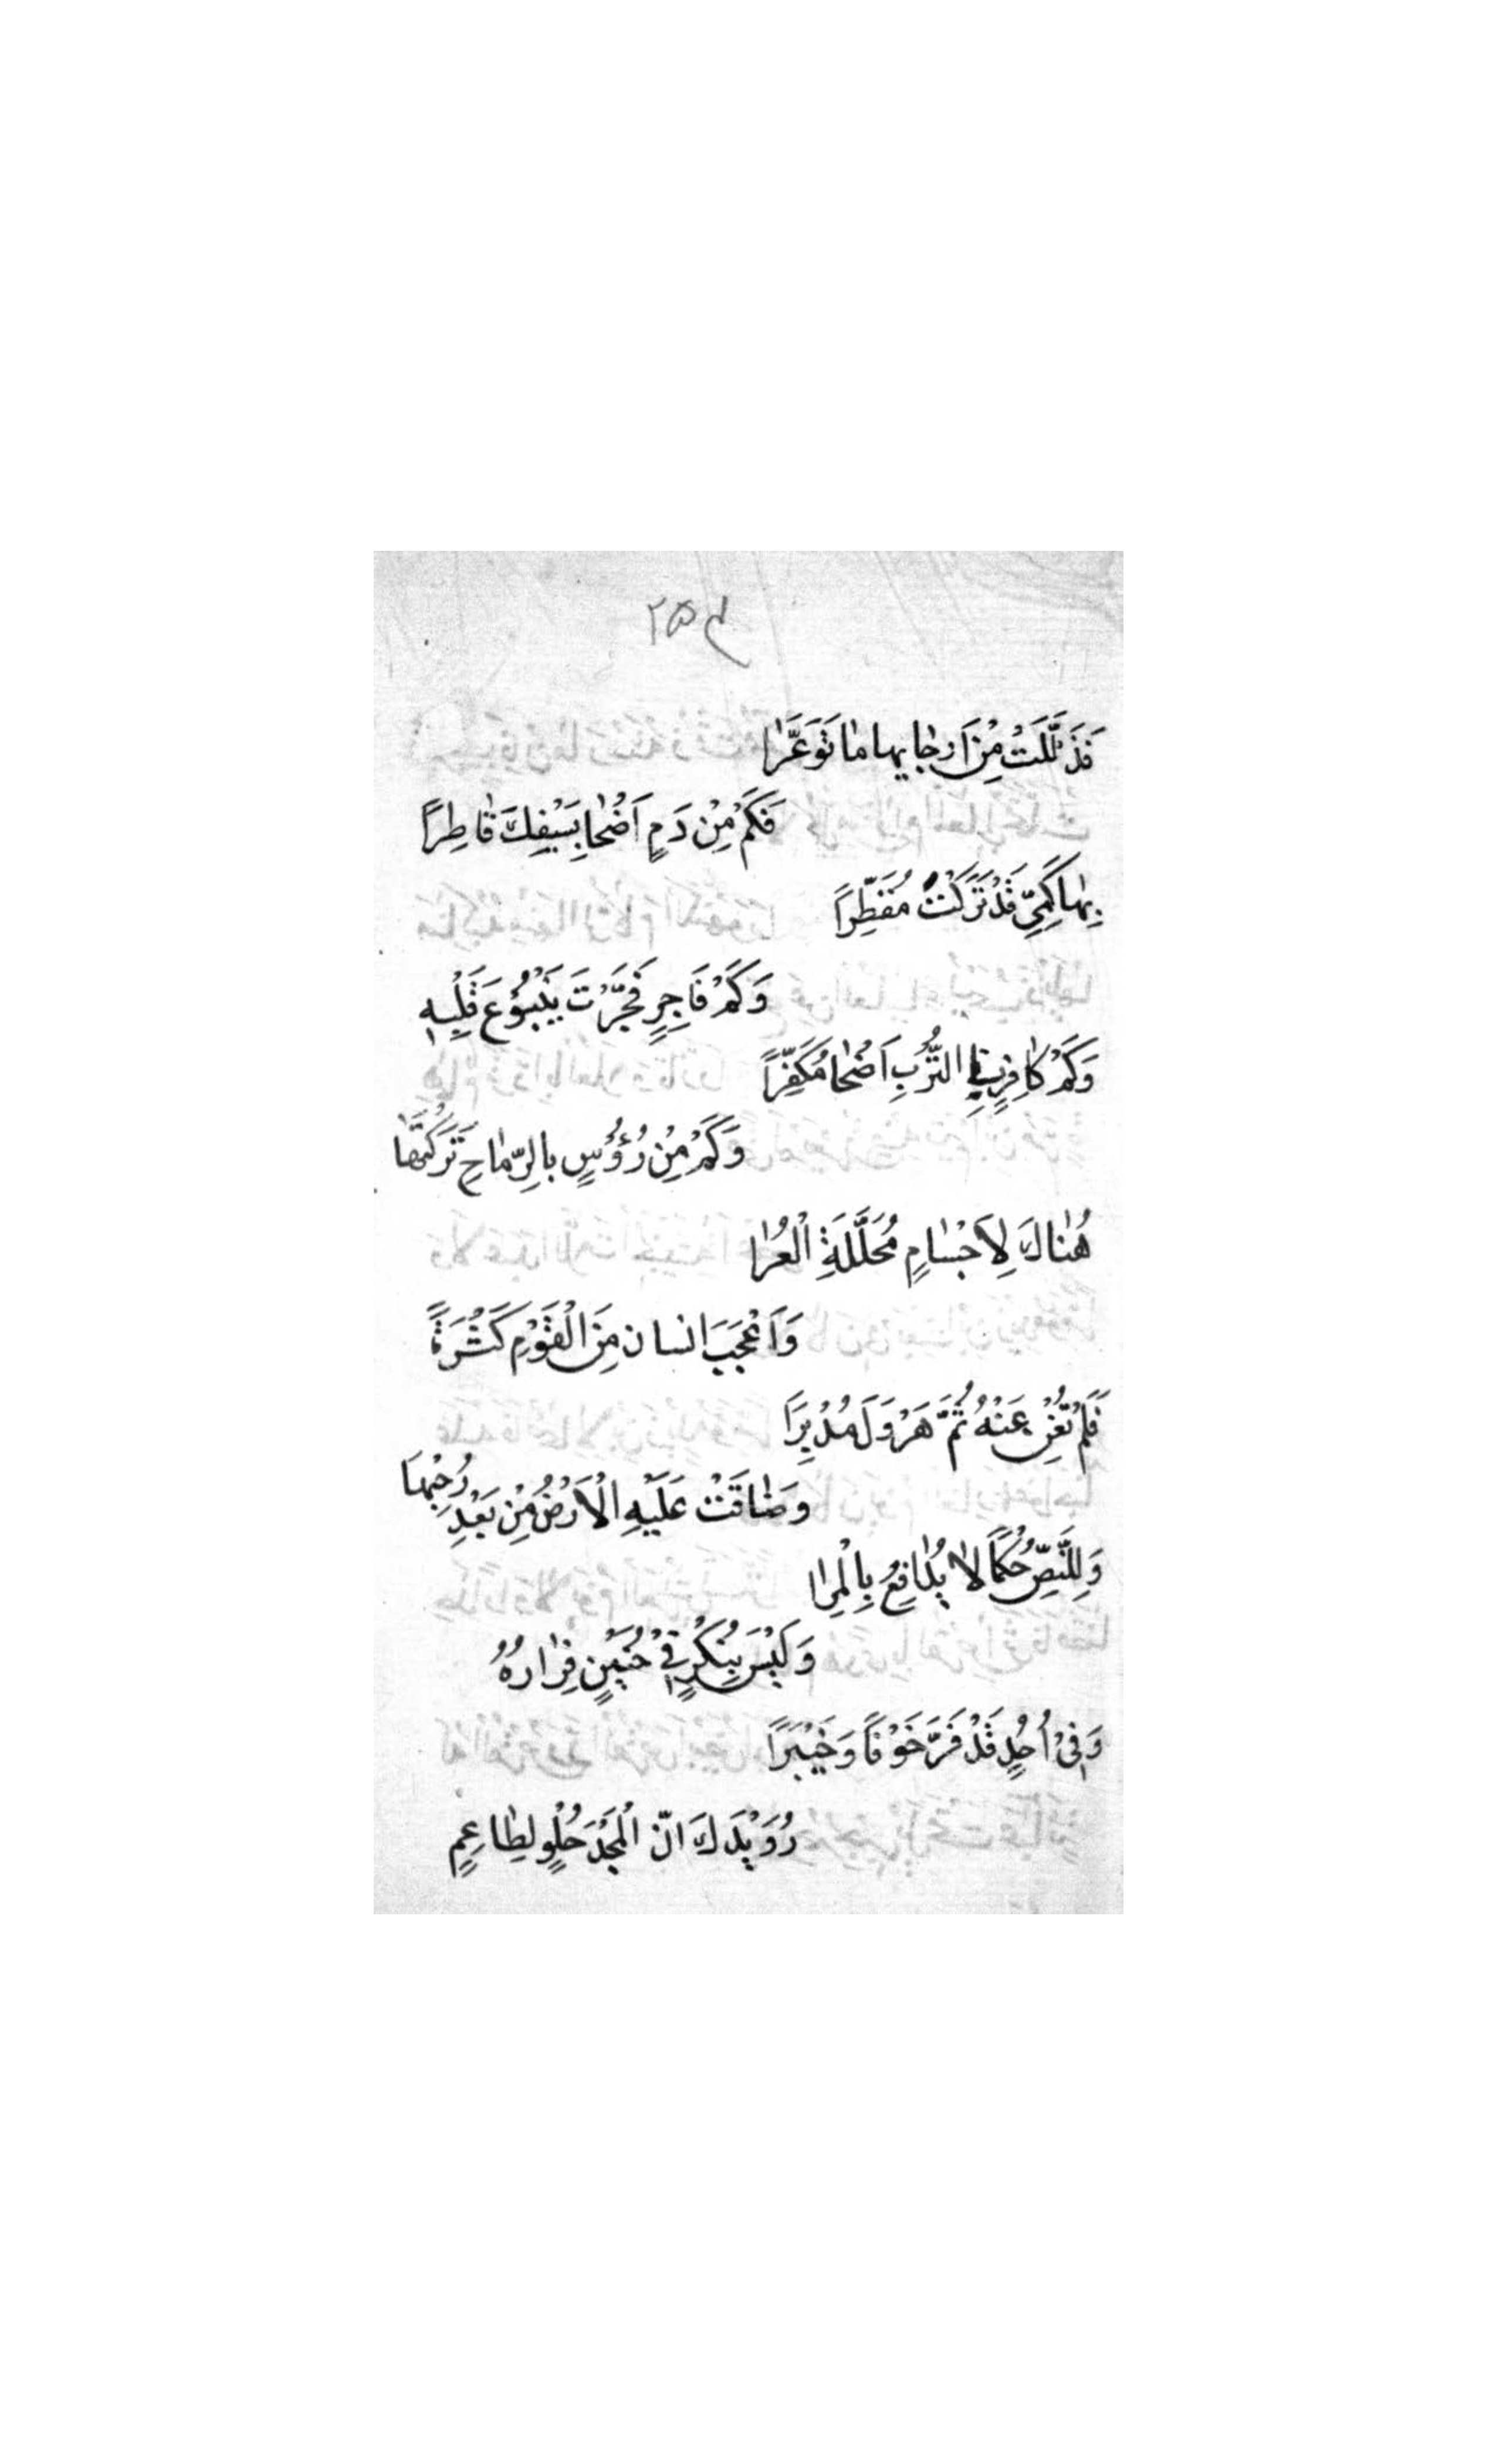 م ۲۵
فَذَلَّلَتْ مِنْ اَرْجٰايِهٰا مٰا تَوَعَّرٰا
فَكَمْ مِنْ دَمٍ اَضْحٰا بِسَيْفِكَ قٰاطِرًا
بِهٰا كَمِىٍّ قَدْ تَرَكْتَ مُقَطِّرًا
وَكَمْ فَاجِرٍ فَجَّرْتَ يَنْبُوْعَ قَلْبِهِ
وَكَمْ كٰافِرٍ فِي التُّرْبِ اَضْحٰا مُكَفِّرًا
وَكَمْ مِنْ رُؤُسٍ بِالرِّمٰاحِ تَرَكْتَهٰا
هُنٰاكَ لِاَجْسٰامٍ مُحَلَّلَةِ الْعُرٰا
وَاَعْجَبَ انسان مِنَ الْقَوْمِ كَثْرَةً
فَلَمْ تُغْنِ عَنْهُ ثُمَّ هَرْوَلَ مُدْبِرَا
وَضٰاقَتْ عَلَيْهِ الْاَرْضُ مِنْ بَعْدِ رُحْبِهَا
وَلِلنَّصِّ حُكْمًا لاٰ يُدٰافِعُ بِالْمِرٰا
وَلَيْسَ بِنُكْرٍ فِيْ حُنَيْنٍ فِرٰارُهُ
وَفِىْ اُحُدٍ قَدْ فَرَّ خَوْفًا وَخَيْبَرًا
رُوَيْدَكَ انّ الْمَجْدَ حُلْوٍ لِطٰاعِمٍ